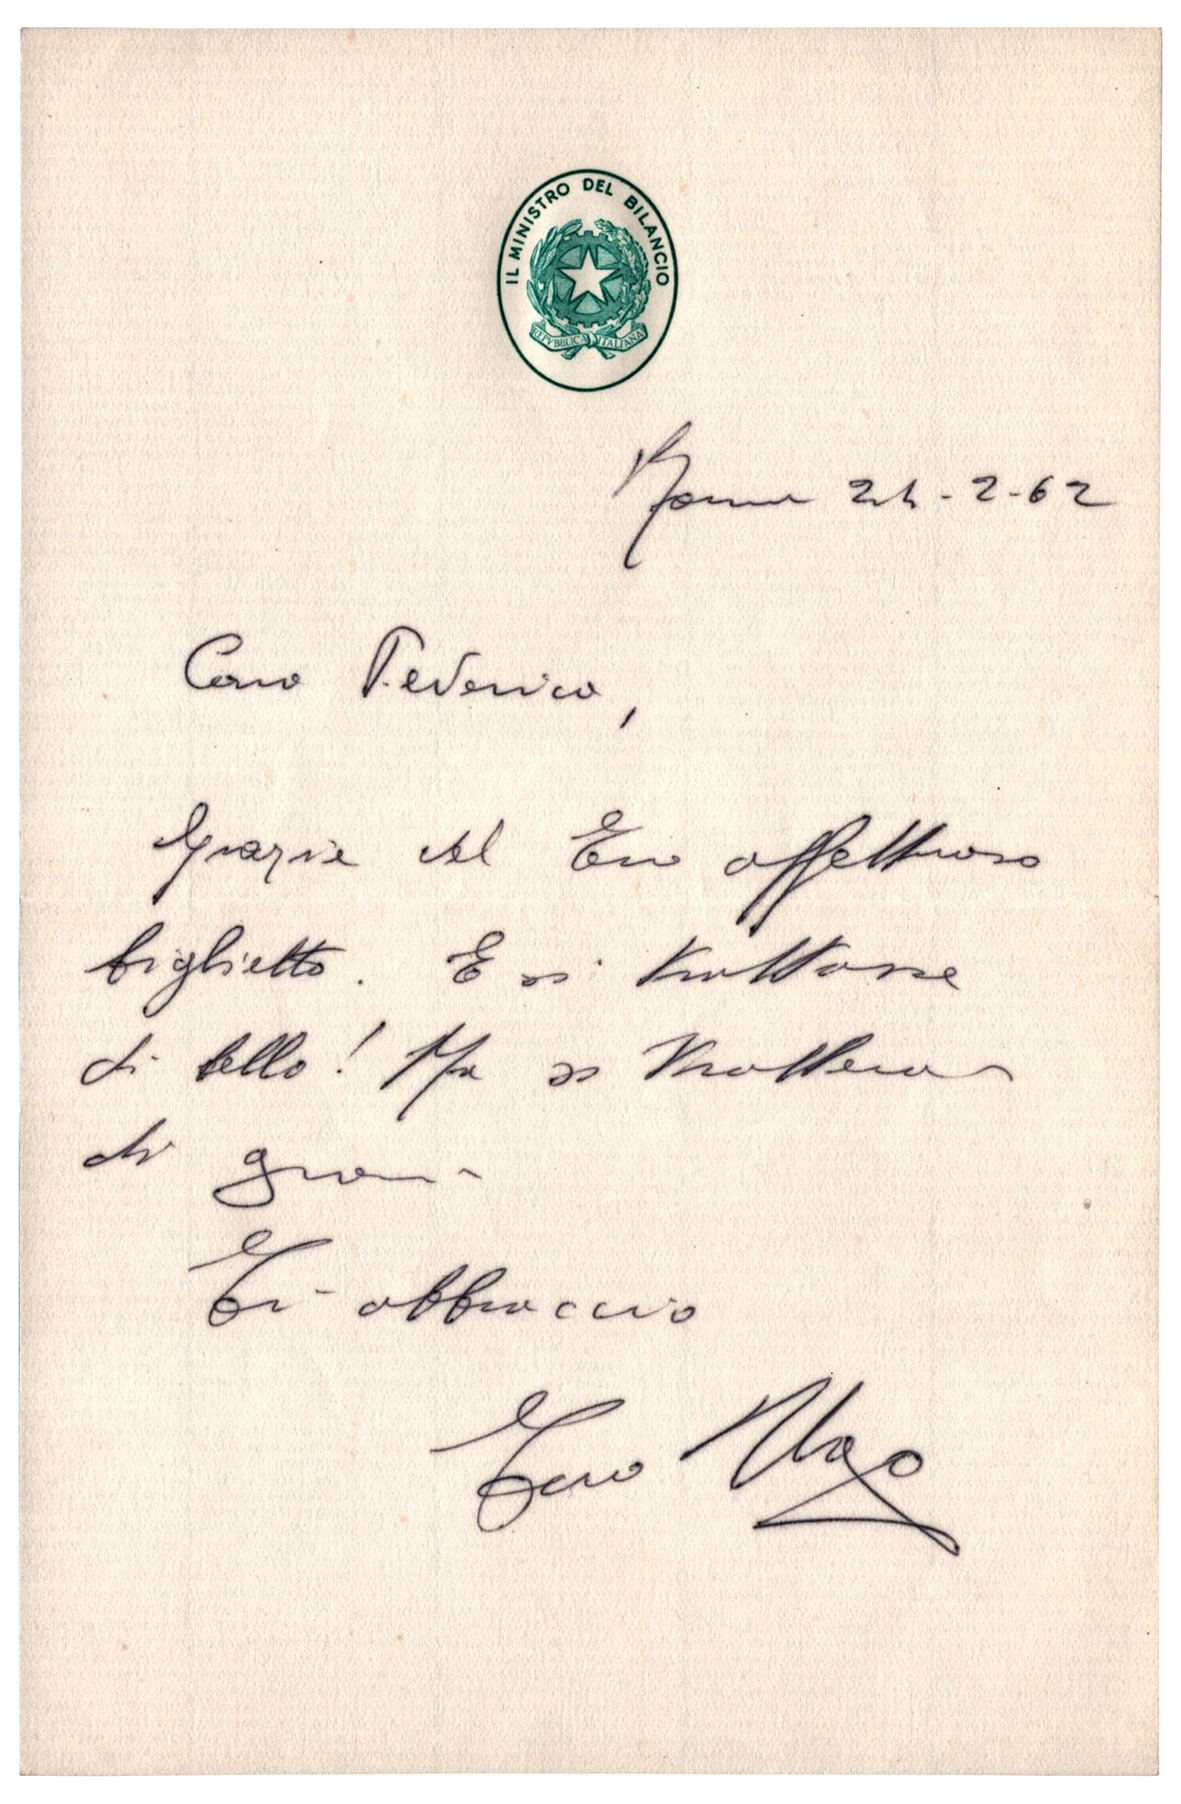 IL MINISTRO DEL BILANCIO
REPVBBLICA ITALIANA
Roma 24-2-62
Caro Federico,
Grazie del Tuo affettuoso
biglietto. E si trattasse
di bello! Ma si tratterà
di
Ti abbraccio
Tuo Ugo